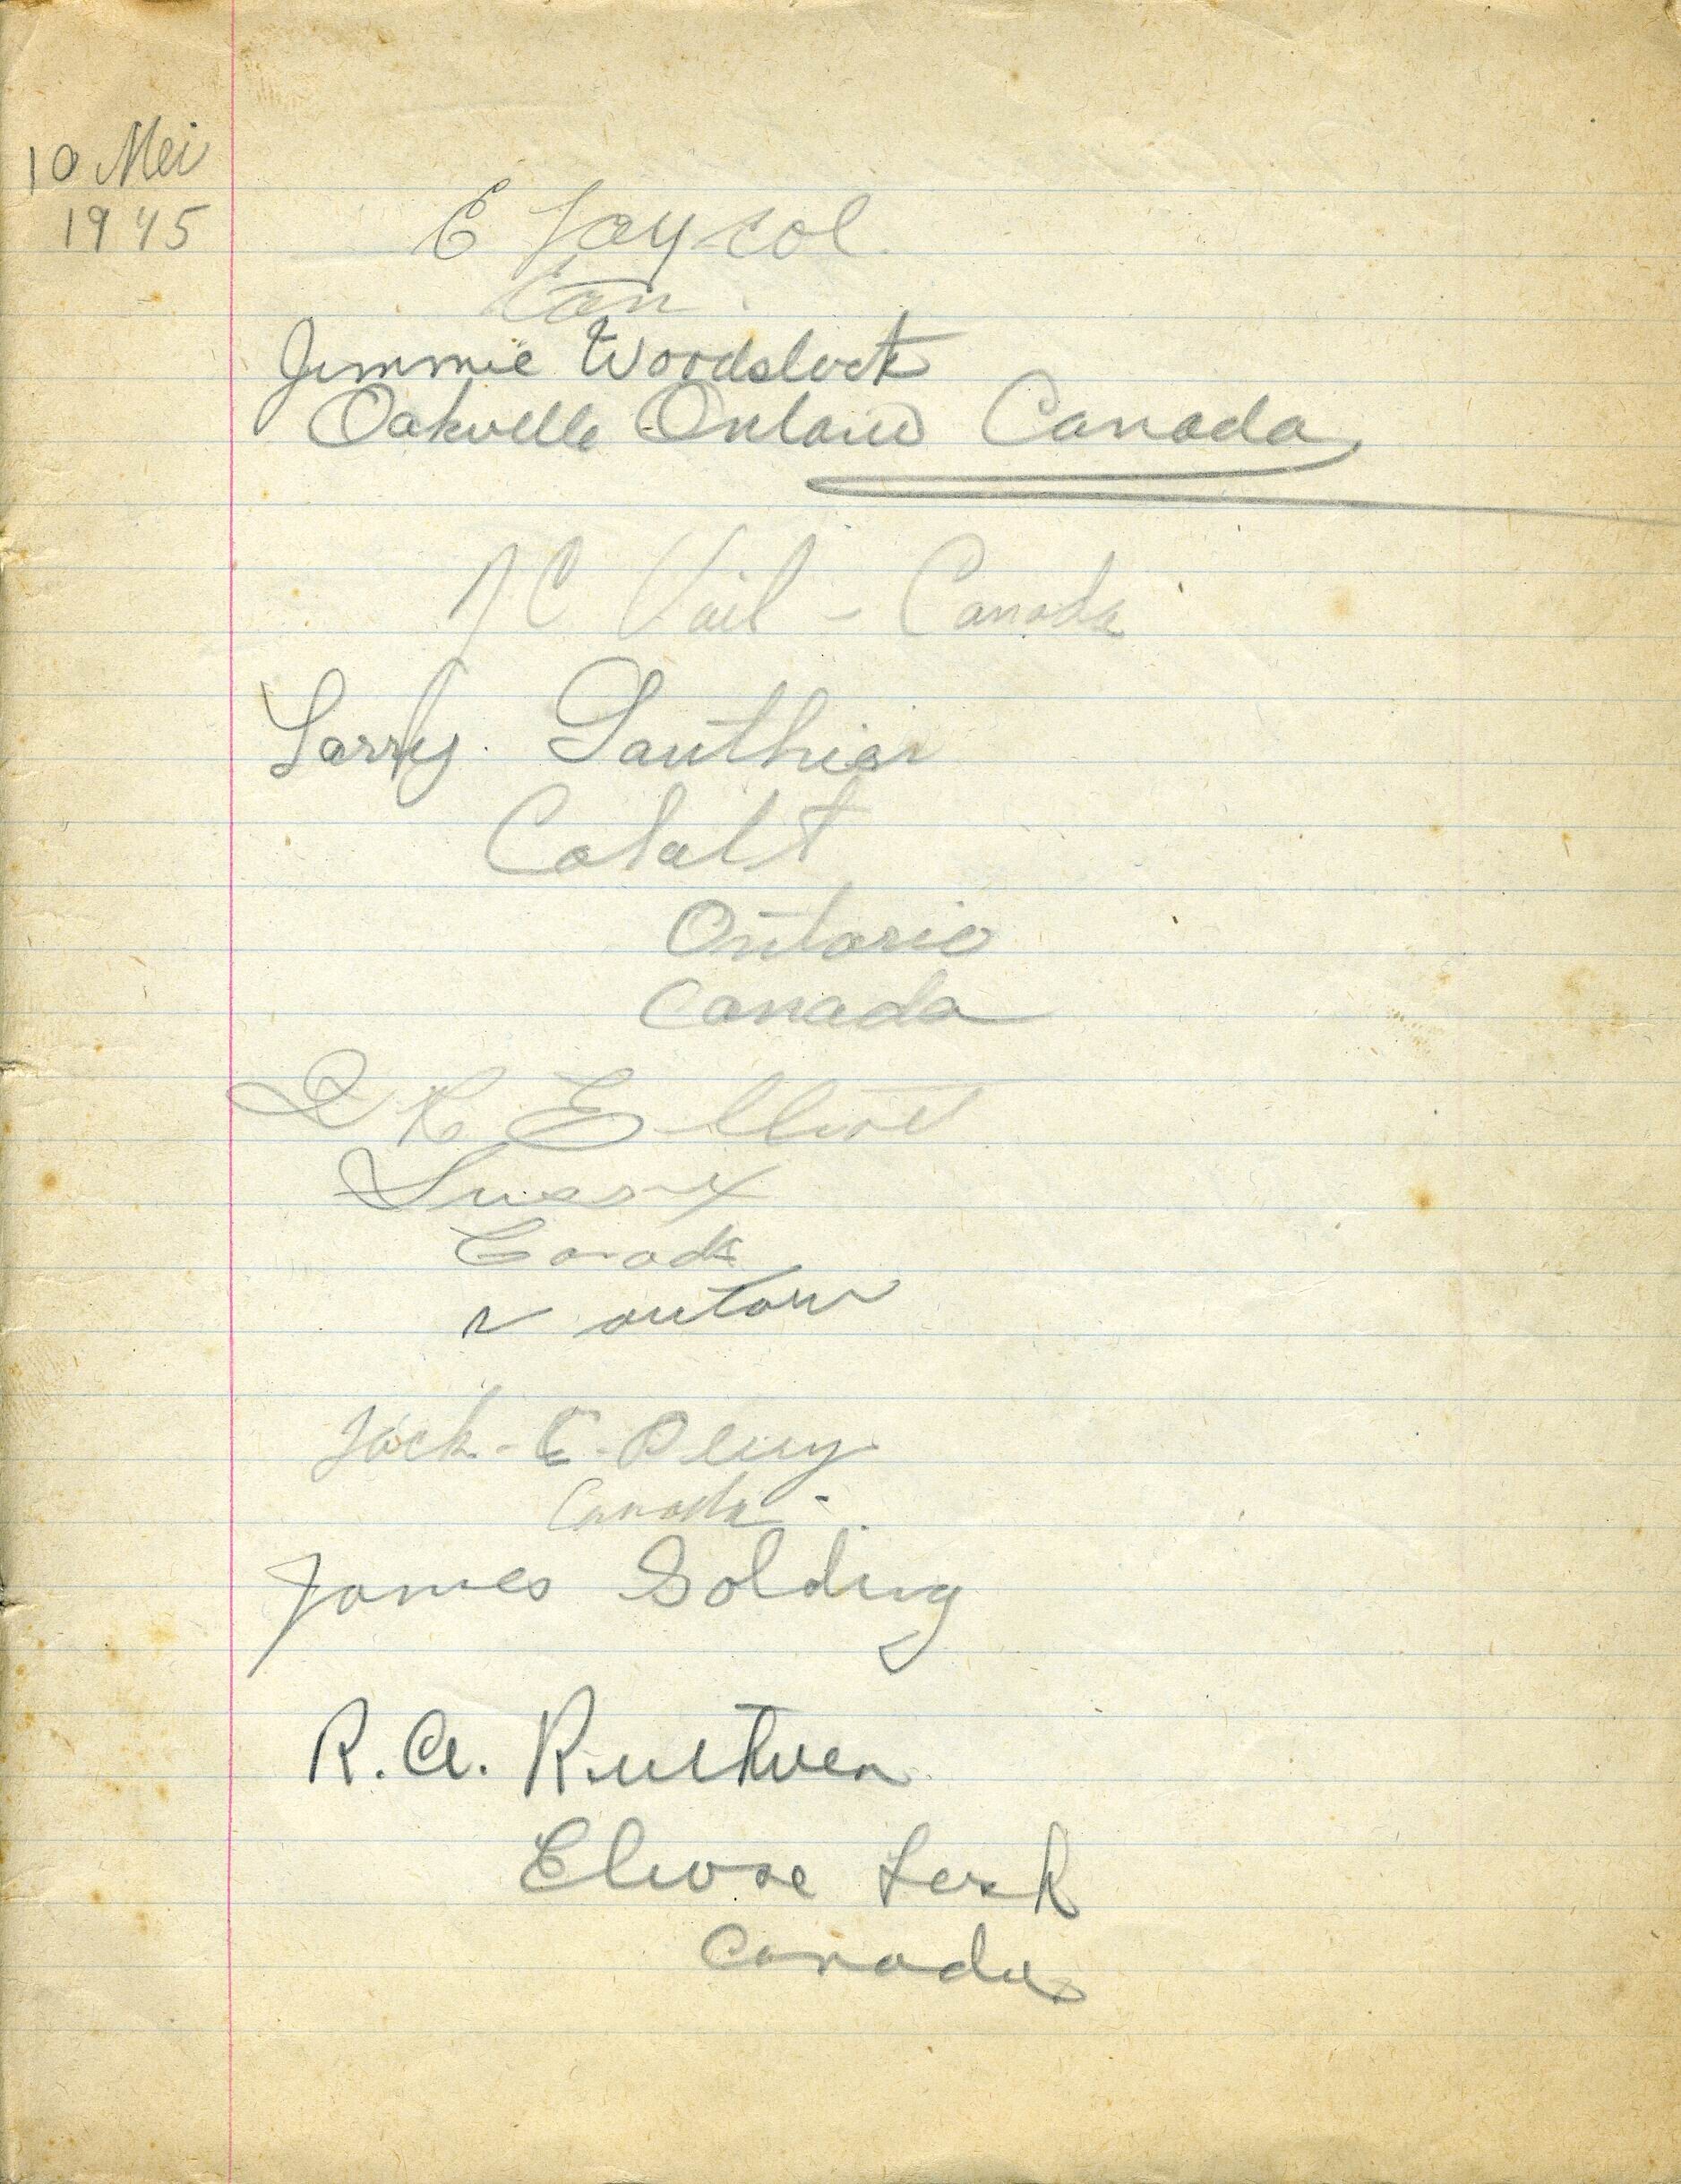 10 Mei
1945
E
Can
Jimmie Woodslock
Oakville Ontario Canada
C Vail - Canada
Larry Gauthier
Cobalt
Ontario
Canada
R Elliott
Sussex
Canada
Jack - E - Perry
Canada
James Golding
R. A. Ruthven
Canada